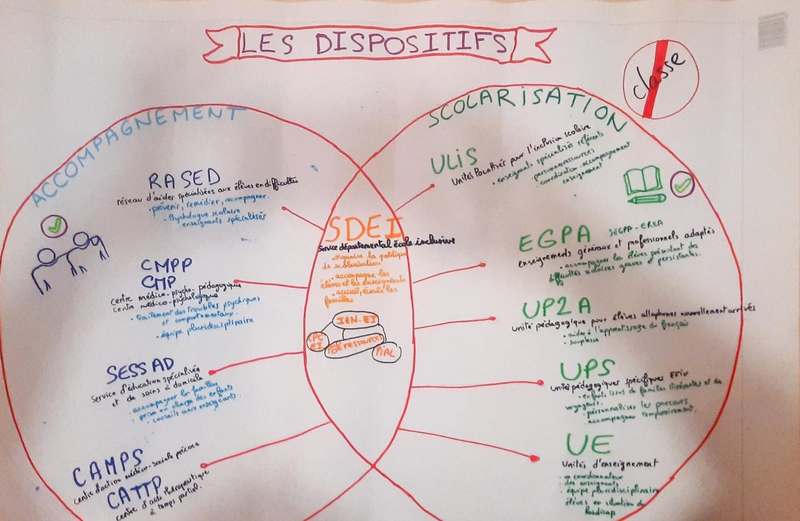 LES DISPOSITIFS
classe
ACCOMPAGNEMENT
SCOLARISATION
RASED
réseau d'aides spécialisées aux élèves en difficultés
• prévenir, remédier, accompagner.
• Psychologue scolaire
enseignants spécialisés
CMPP
CMP
centre médico-psycho-pédagogique
centre médico-psychologique
• traitement des troubles psychiques
et comportementaux.
• équipe pluridisciplinaire
SESSAD
Service d'éducation spécialisée
et de soins à domicile
accompagner les familles
prise en charge des enfants
• conseils aux enseignants.
CAMPS
centre d'action médico-sociale précoce
CATTP
centre d'accueil thérapeutique
à temps partiel.
SDEI
Service départemental école inclusive
• organise la politique
de scolarisation
• accompagne les
élèves et les enseignants
• accueil, écoute les
familles
IEN-EI
CPC
EI
Pôle ressources
PIAL
ULIS
Unités localisées pour l'inclusion scolaire
• enseignants spécialisés référents
personnes ressources
coordination accompagnement
enseignement
EGPA SEGPA - EREA
enseignements généraux et professionnels adaptés
• accompagner les élèves présentant des
difficultés scolaires graves et persistantes.
UP2A
unité pédagogique pour élèves allophones nouvellement arrivés
• aide à l'apprentissage du français
• souplesse
UPS
unités pédagogiques spécifiques EFIV
• enfants issus de familles itinérantes et de
voyageurs.
• personnaliser les parcours
accompagner
UE
Unités d'enseignement
• coordonnateur
des enseignants
• équipe pluridisciplinaire
élèves en situation de
handicap